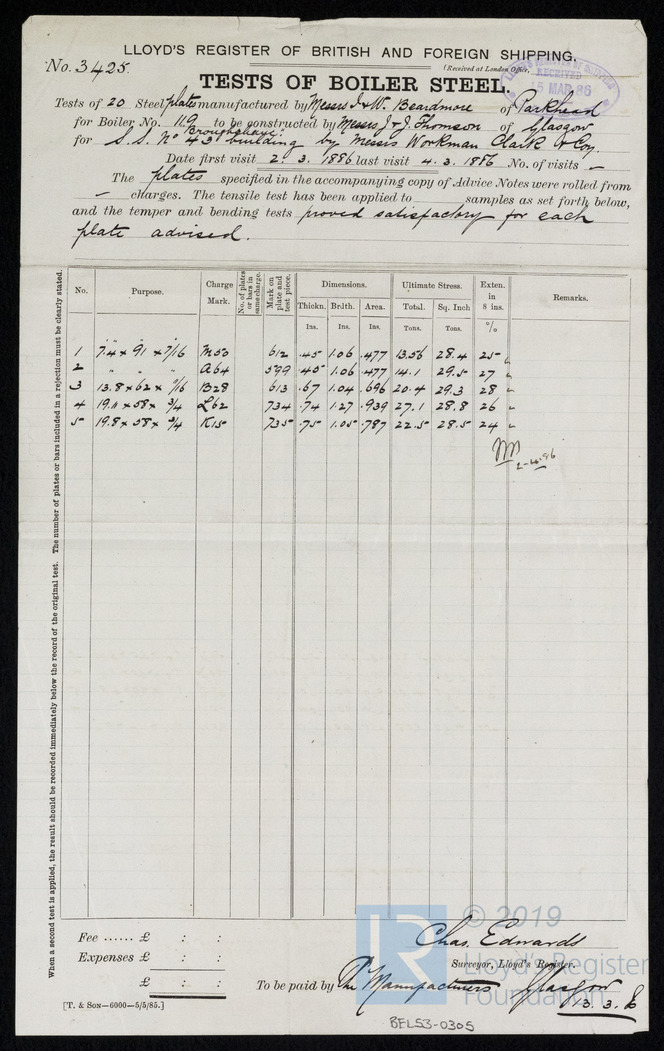 LLOYD'S REGISTER OF BRITISH AND FOREIGN SHIPPING.
No. 3425.
(Received at London Office,
RECEIVED
15 MAR 86
TESTS OF BOILER STEEL.
Tests of 20 Steel plates manufactured by Messrs J & W. Beardmore of Parkhead
for Boiler No. 119 to be constructed by Messrs J & J. Thomson of Glasgow
for S.S. No 43 building by Messrs Workman Clark & Coy.
Date first visit 2. 3. 1886 last visit 4. 3. 1886 No. of visits —
The plates specified in the accompanying copy of Advice Notes were rolled from
— charges. The tensile test has been applied to samples as set forth below,
and the temper and bending tests proved satisfactory for each
plate advised.
When a second test is applied, the result should be recorded immediately below the record of the original test. The number of plates or bars included in a rejection must be clearly stated.
No. Purpose. Charge Mark. No. of plates or bars in same charge. Mark on plate and test piece. Dimensions. Ultimate Stress. Exten. in 8 ins. Remarks.
Thickn. Brdth. Area. Total. Sq. Inch
Ins. Ins. Ins. Tons. Tons. %
1 7.4 x 91 x 7/16 M50 612 .45 1.06 .477 13.56 28.4 25 "
2 " " " A64 599 .45 1.06 .477 14.1 29.5 27 "
3 13.8 x 62 x 11/16 B28 613 .67 1.04 .696 20.4 29.3 28 "
4 19.11 x 58 x 3/4 L62 734 .74 1.27 .939 27.1 28.8 26 "
5 19.8 x 58 x 3/4 K15 735 .75 1.05 .787 22.5 28.5 24 "
Fee ...... £ : :
Expenses £ : :
£ : :
Chas. Edwards
Surveyor, Lloyd's Register.
To be paid by The Manufacturers Glasgow
13.3.86
[T. & SON—6000—5/5/85.]
BEL53-0305
LR
© 2019
Lloyd's Register
Foundation